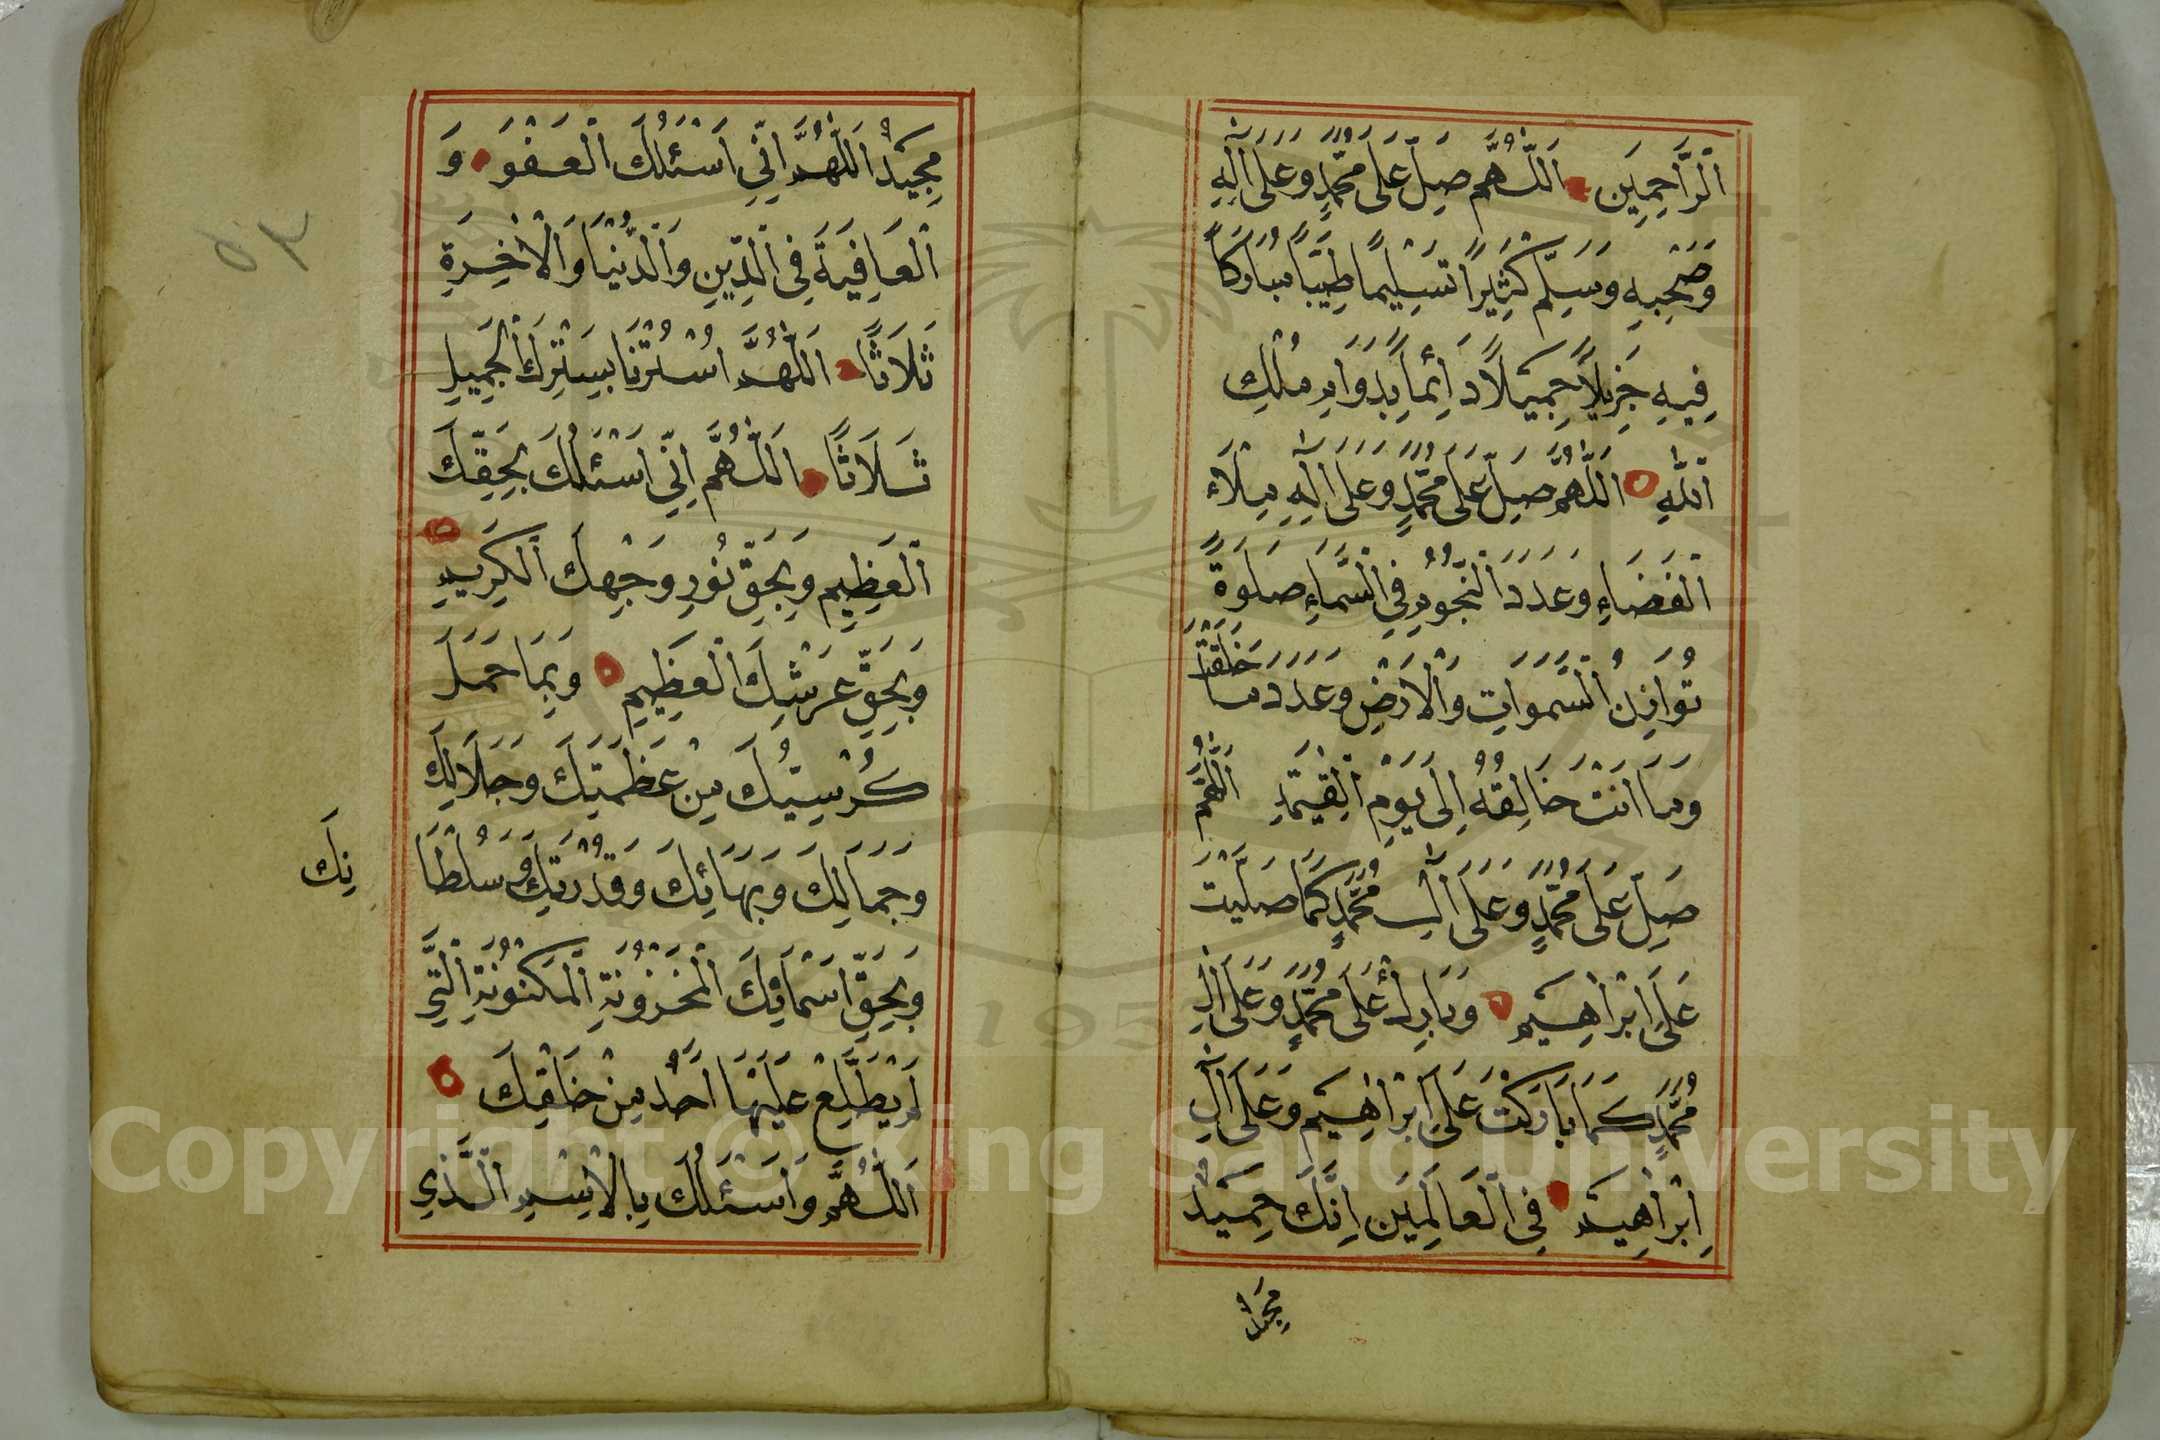 اَلرَّاحِمِينَ اَللّٰهُمَّ صَلِّ عَلَى مُحَمَّدٍ وَعَلَى اٰلِهِ
وَصَحْبِهِ وَسَلِّمْ كَثِيْرًا تَسْلِيْمًا طَيِّبًا مُبَارَكًا
فِيهِ جَزِيلًا جَمِيلًا دَائِمًا بِدَوَامِ مُلْكِ
اللّٰهِ اَللّٰهُمَّ صَلِّ عَلَى مُحَمَّدٍ وَعَلَى اٰلِهِ مِلَاءَ
اَلْفَضَاءِ وَعَدَدَ النُّجُومِ فِي السَّمَاءِ صَلَوةً
تُوَازِنُ السَّمَوَاتِ وَالْاَرْضِ وَعَدَدَ مَا خَلَقْتَ
وَمَا اَنْتَ خَالِقُهُ اِلَى يَوْمِ الْقِيٰمَةِ اَللّٰهُمَّ
صَلِّ عَلَى مُحَمَّدٍ وَعَلَى اٰلِ مُحَمَّدٍ كَمَا صَلَّيْتَ
عَلَى اِبْرَاهِيْمَ وَبَارِكْ عَلَى مُحَمَّدٍ وَعَلَى اٰلِ
مُحَمَّدٍ كَمَا بَارَكْتَ عَلَى اِبْرَاهِيْمَ وَعَلَى اٰلِ
اِبْرَاهِيمَ فِي الْعَالَمِيَن اِنَّكَ حَمِيْدٌ
مَجِيْدٌ
مَجِيْدٌ اَللّٰهُمَّ اِنِّي اَسْئَلُكَ الْعَفْوَ وَ
الْعَافِيَةَ فِي الدِّيْنِ وَالدُّنْيَا وَالْاٰخِرَةِ
ثَلَاثًا اَللّٰهُمَّ اسْتُرْنَا بِسِتْرِكَ الْجَمِيلِ
ثَلَاثًا اَللّٰهُمَّ اِنِّي اَسْئَلُكَ بِحَقِّكَ
الْعَظِيمِ وَبِحَقِّ نُورِ وَجْهِكَ الْكَرِيمِ
وَبِحَقِّ عَرْشِكَ الْعَظِيمِ وَبِمَا حَمَلَ
كُرْسِيُّكَ مِنْ عَظَمَتِكَ وَجَلَالِكَ
وَجَمَالِكَ وَبَهَائِكَ وَقُدْرَتِكَ وَسُلْطَا
نِكَ
وَبِحَقِّ اَسْمَائِكَ الْمَخْزُونَةِ الْمَكْنُونَةِ الَّتِي
لَمْ يَطَّلِعْ عَلَيْهَا اَحَدٌ مِنْ خَلْقِكَ
اَللّٰهُمَّ وَاَسْئَلُكَ بِالْاِسْمِ الَّذِي
٥٣
1957
Copyright © King Saud University